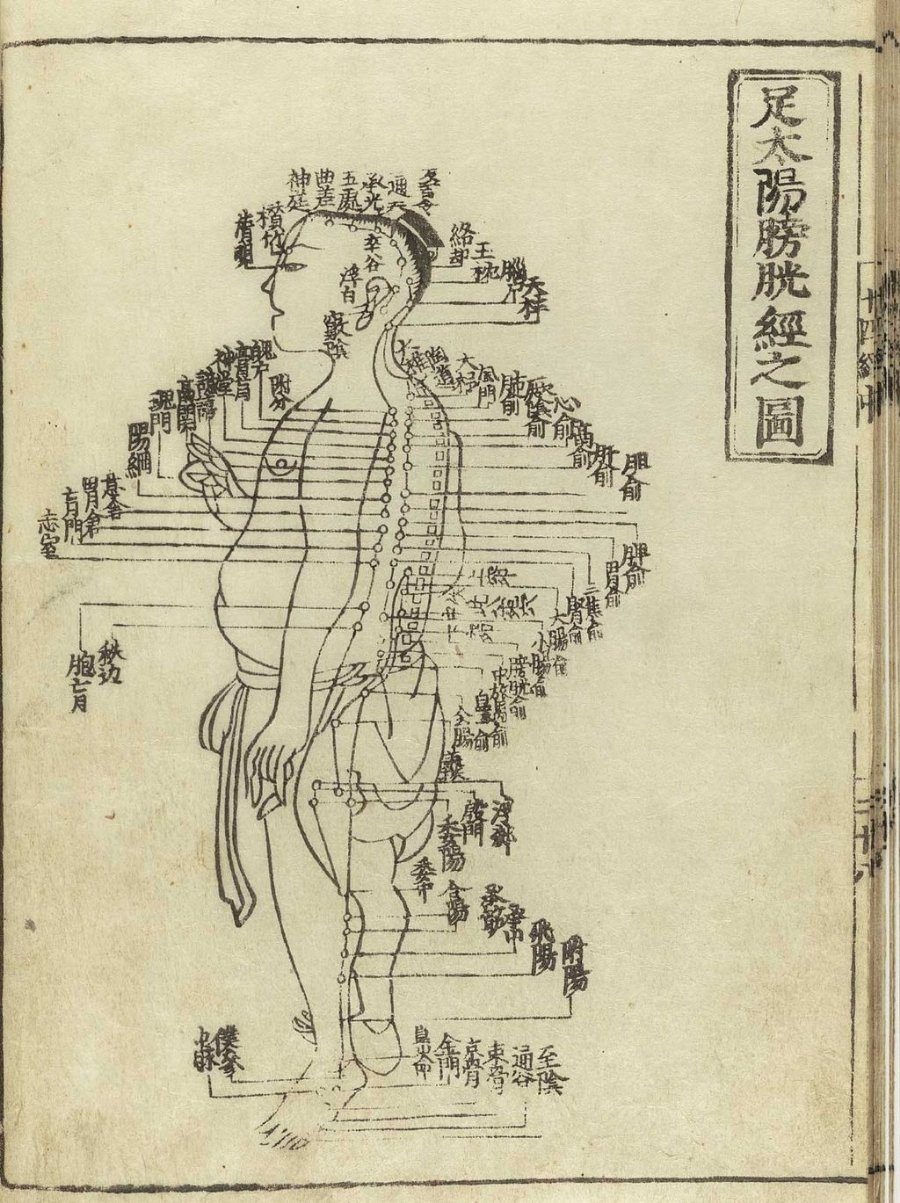 足太陽膀胱經之圖
神庭
曲差
五處
承光
通天
攅竹
睛明
率谷
浮白
竅陰
絡却
王枕
天柱
陶道
大杼
風門
肺俞
心俞
肝俞
胆俞
脾俞
胃俞
三焦俞
腎俞
大腸俞
小腸俞
膀胱俞
附分
魄户
膏肓
神堂
譩譆
膈關
魂門
陽綱
意舍
胃倉
肓門
志室
胞肓
秩边
殷門
委陽
委中
合陽
承筋
承山
飛陽
附陽
僕參
申脉
金門
京骨
束骨
通谷
至陰